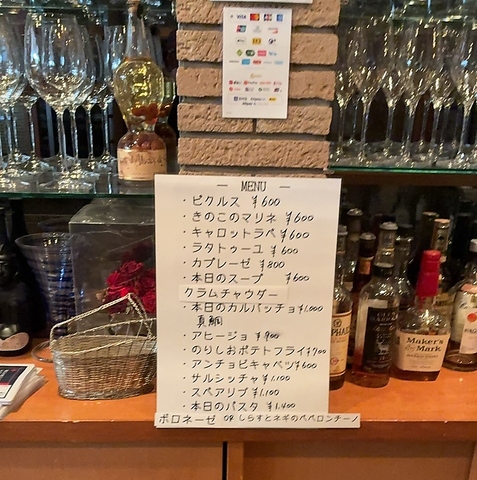 — MENU —
・ピクルス ¥600
・きのこのマリネ ¥600
・キャロットラペ ¥600
・ラタトゥーユ ¥600
・カプレーゼ ¥800
・本日のスープ ¥600
クラムチャウダー
・本日のカルパッチョ ¥1,000
真鯛
・アヒージョ ¥900
・のりしおポテトフライ ¥700
・アンチョビキャベツ ¥600
・サルシッチャ ¥1,100
・スペアリブ ¥1,100
・本日のパスタ ¥1,400
ボロネーゼ or しらすとネギのペペロンチーノ
Maker's
Mark